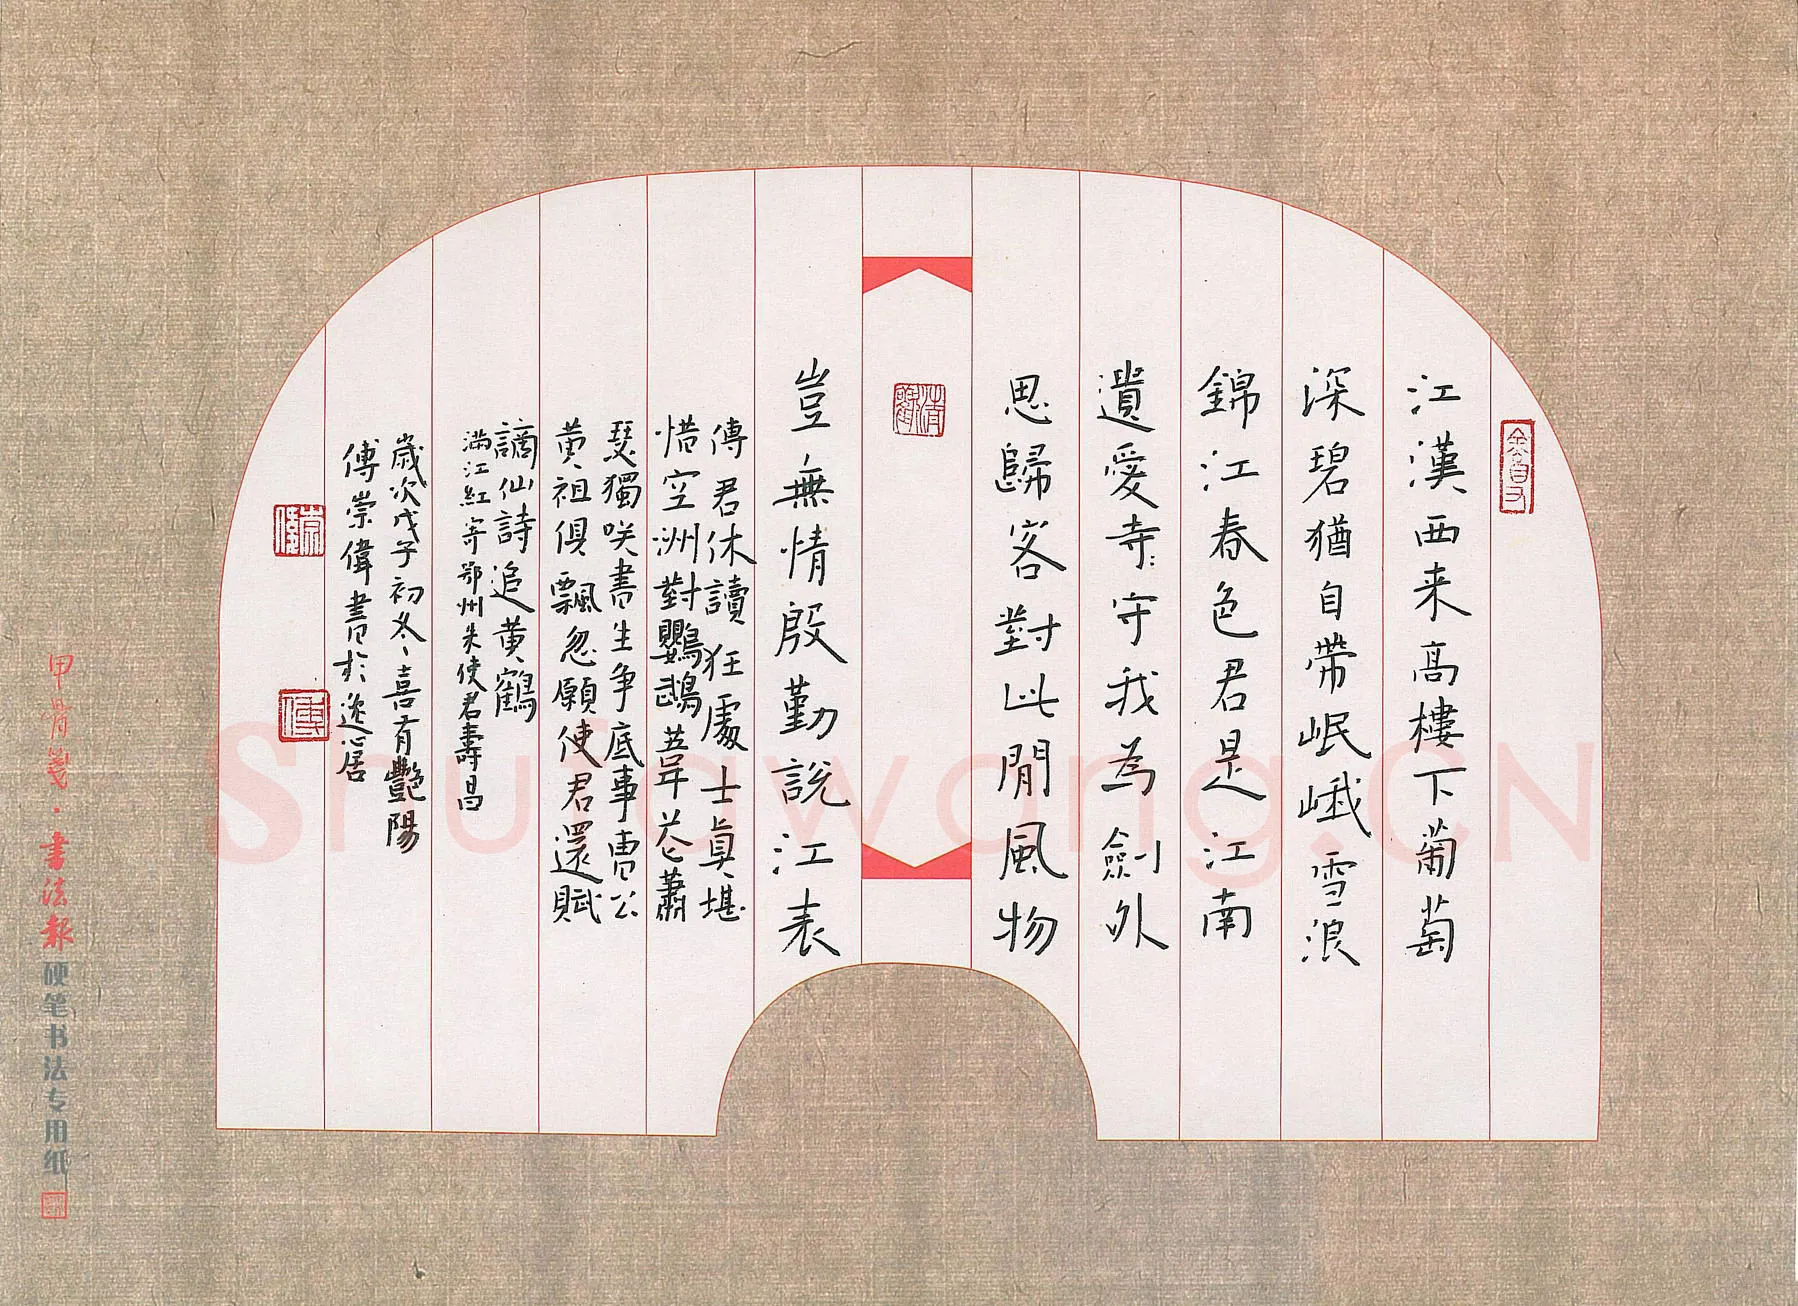 江漢西来高樓下葡萄
深碧猶自帶岷峨雪浪
錦江春色君是江南
遺愛寺守我為劍外
思歸客對此間風物
豈無情殷勤說江表
傳君休讀狂處士真堪
惜空洲對鸚鵡葦花蕭
瑟獨咲書生争底事曹公
黄祖俱飄忽願使君還賦
謫仙詩追黄鶴
滿江紅寄鄂州朱使君壽昌
歲次戊子初冬喜有艷陽
傅崇偉書於逸居
崇偉
傅
甲骨箋·書法報
硬笔书法专用纸
Shufawang.CN